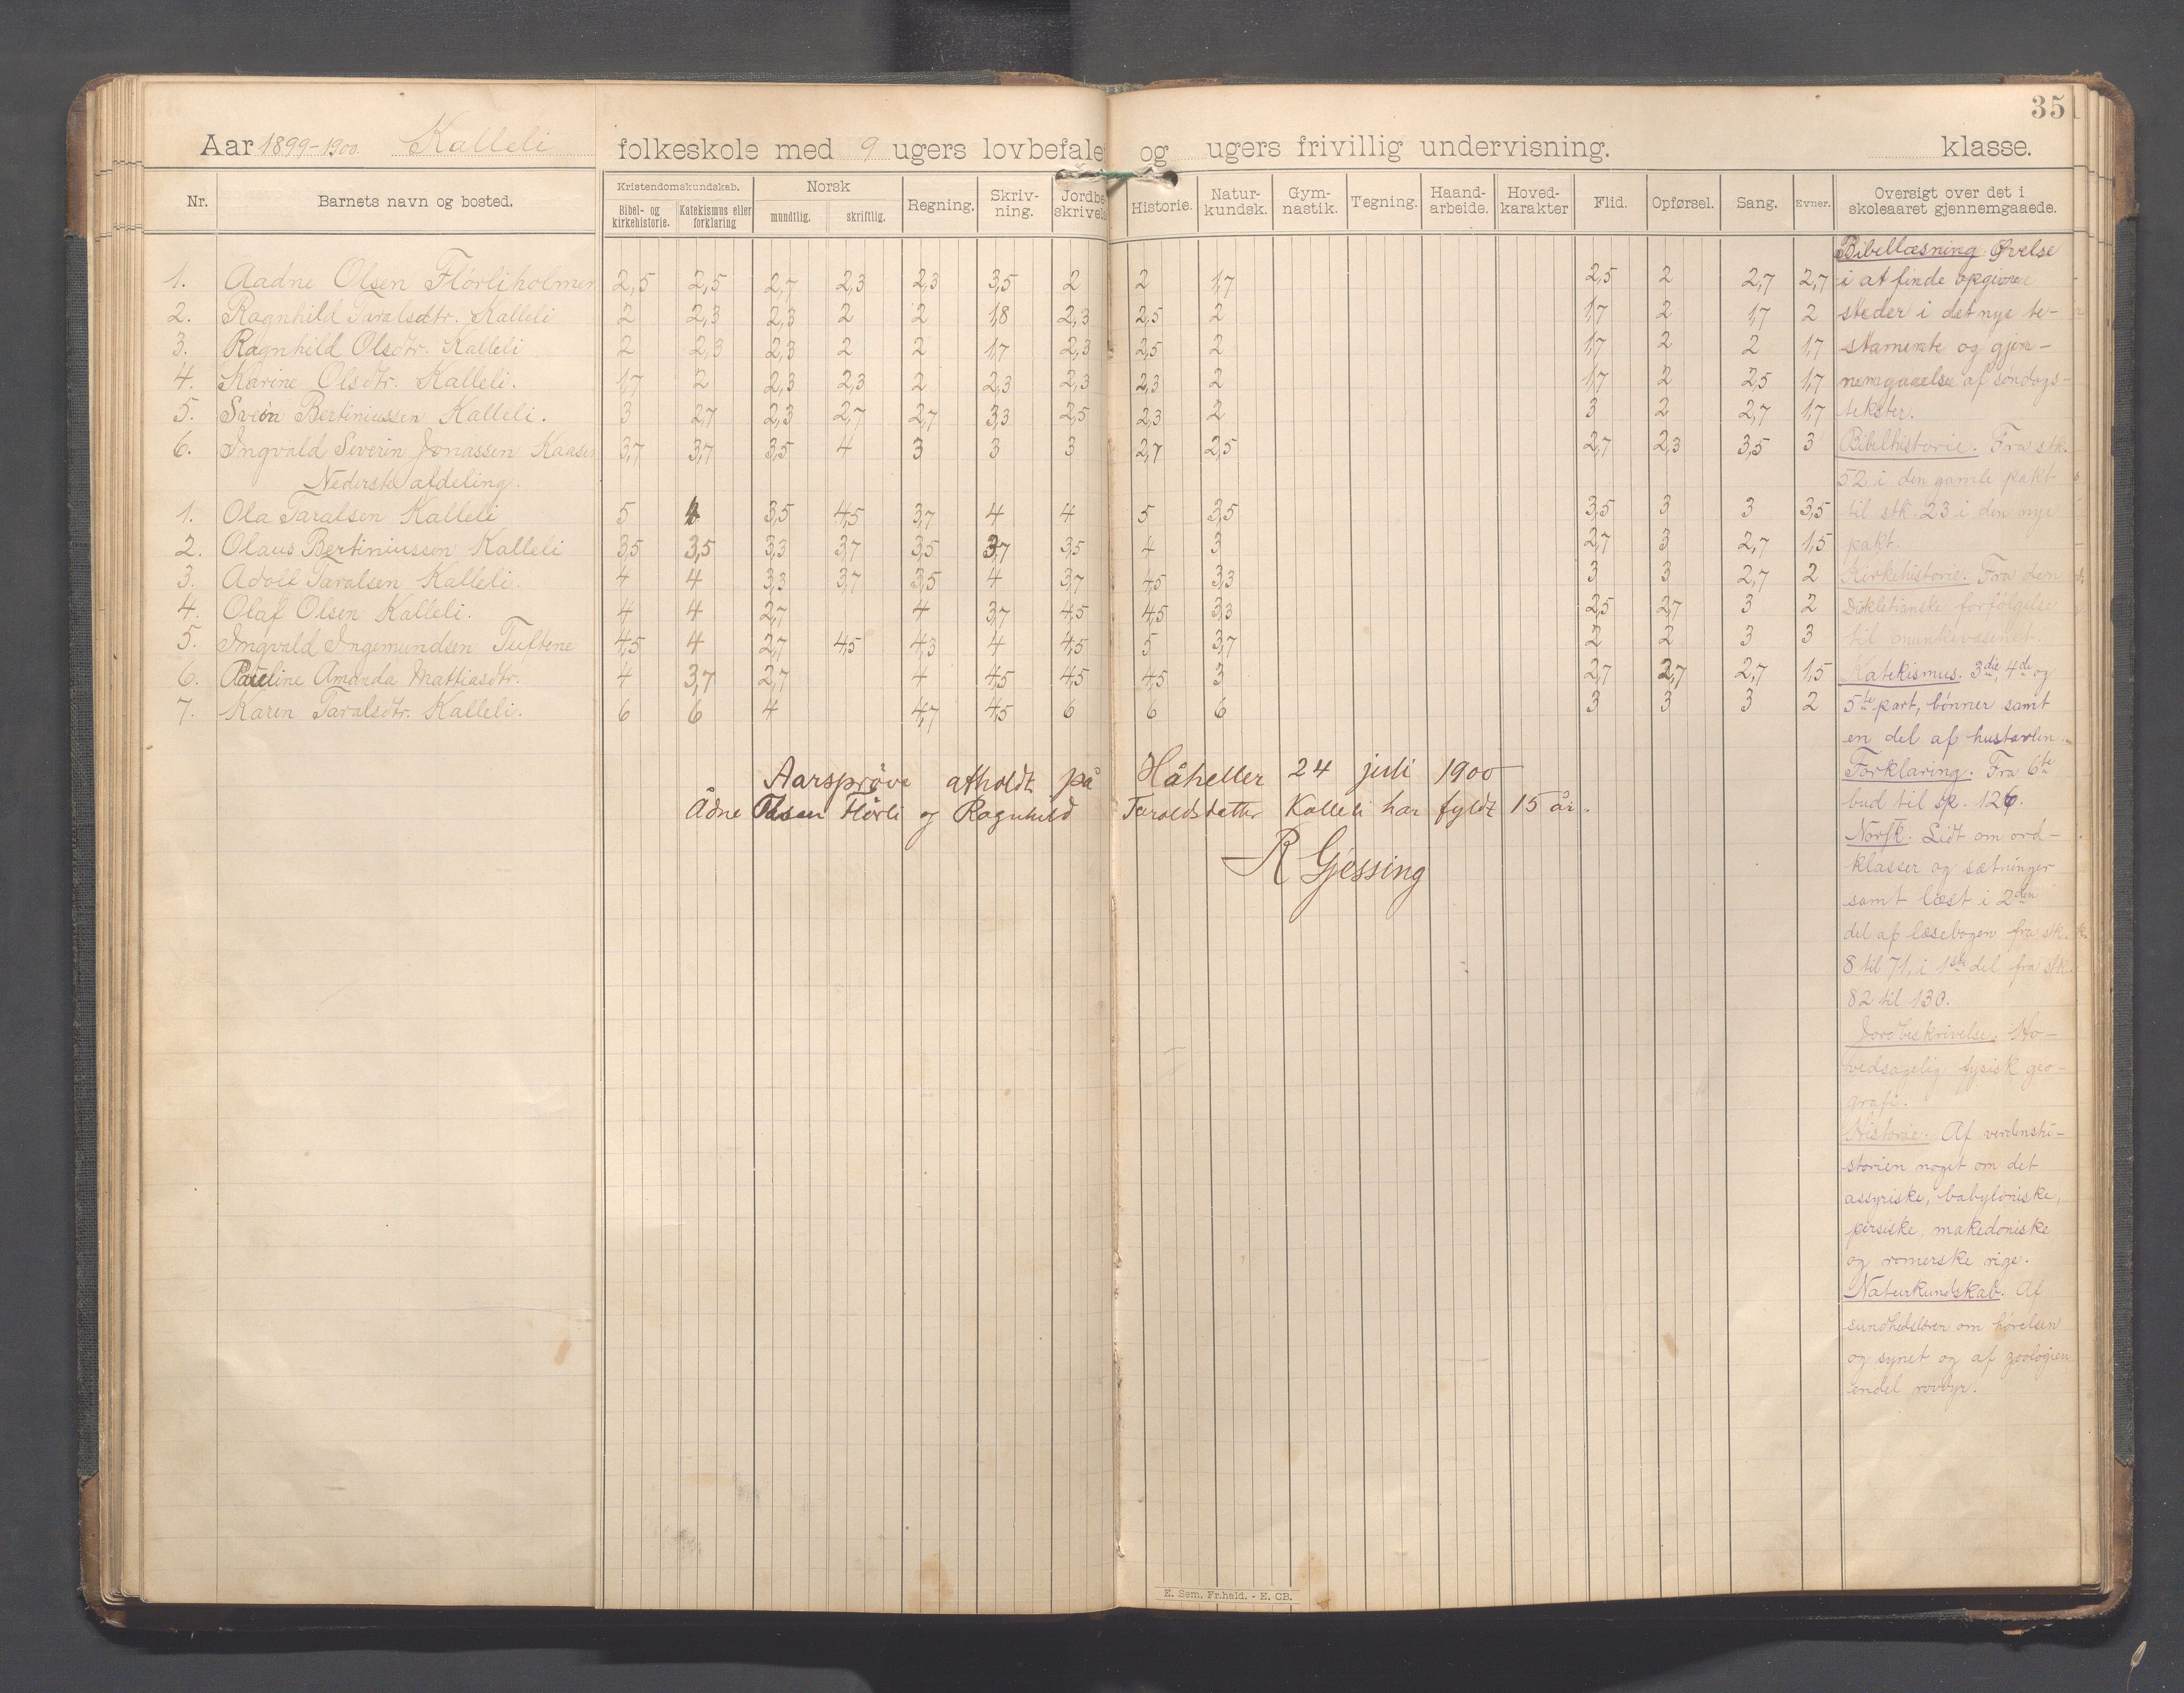 35
Aar 1899-1900. Kalleli folkeskole med 9 ugers lovbefale og ugers frivillig undervisning. klasse.
Nr. Barnets navn og bosted. Kristendomskundskab. Bibel- og kirkehistorie. Katekismus eller forklaring Norsk mundtlig. skriftlig. Regning. Skriv-ning. Jordbe skrivels Historie. Natur-kundsk. Gym-nastik. Tegning. Haand-arbeide. Hoved-karakter Flid. Opførsel. Sang. Evner. Oversigt over det i skoleaaret gjennemgaaede.
1. Aadne Olsen Flørliholmen 2,5 2,5 2,7 2,3 2,3 3,5 2 2 1,7 2,5 2 2,7 2,7
2. Ragnhild Taralsdtr. Kalleli 2 2,3 2,3 2 2 1,8 2,3 2,5 2 1,7 2 1,7 2
3. Ragnhild Olsdtr. Kalleli 2 2,3 2,3 2 2 1,7 2,3 2,5 2 1,7 2 2 1,7
4. Karine Olsdtr. Kalleli. 1,7 2 2,3 2,3 2 2,3 2,3 2,3 2 1,7 2 2,5 1,7
5. Svein Bertiniussen Kalleli. 3 2,7 2,3 2,7 2,7 3,3 2,5 2,3 2 3 2 2,7 1,7
6. Ingvald Severin Jonassen Kaasen 3,7 3,7 3,5 4 3 3 3 2,7 2,5 2,7 2,3 3,5 3
Nederste afdeling.
1. Ola Taralsen Kalleli 5 4 3,5 4,5 3,7 4 4 5 3,5 3,5 3 3 3,5
2. Olaus Bertiniussen Kalleli 3,5 3,5 3,3 3,7 3,5 3,7 3,5 4 3 2,7 3 2,7 1,5
3. Adolf Taralsen Kalleli. 4 4 3,3 3,7 3,5 4 3,7 4,5 3,3 3 3 2,7 2
4. Olaf Olsen Kalleli. 4 4 2,7 4 3,7 4,5 4,5 3,3 2,5 2,7 3 2
5. Ingvald Ingemundsen Tuftene 4,5 4 2,7 4,5 4,3 4 4,5 5 3,7 2 2 3 3
6. Pauline Amanda Mattiasdtr. 4 3,7 2,7 4 4,5 4,5 4,5 3 2,7 2,7 2,7 1,5
7. Karen Taralsdtr. Kalleli. 6 6 4 4,7 4,5 6 6 6 3 3 3 2
Aarsprøve afholdt på Håheller 24 juli 1900
Ådne Olsen Flørli og Ragnhild Taraldsdatter Kalleli har fyldt 15 år.
R Gjessing
Bibellæsning. Øvelse
i at finde opgivne
steder i det nye te-
stamente og gjen-
nemgaaelse af søndags-
tekster.
Bibelhistorie. Fra stk.
52 i den gamle pakt
til stk. 23 i den nye
pakt.
Kirkehistorie. Fra den
Diokletianske forfølgelse
til munkevæsenet.
Katekismus. 3die, 4de og
5te part, bønner samt
en del af hustavlen.
Forklaring. Fra 6te
bud til sp. 126.
Norsk. Lidt om ord-
klasser og sætninger
samt læst i 2den
del af læsebogen fra stk.
8 til 71, i 1ste del fra stk.
82 til 130.
Jordbeskrivelse. Ho-
vedsagelig fysisk geo-
grafi.
Historie. Af verdenshi-
storien noget om det
assyriske, babyloniske,
persiske, makedoniske
og romerske rige.
Naturkundskab. Af
sundhedslæren om hørelsen
og synet og af zoologien
endel rovdyr.
E. Sem, Fr.hald. - E. CB.